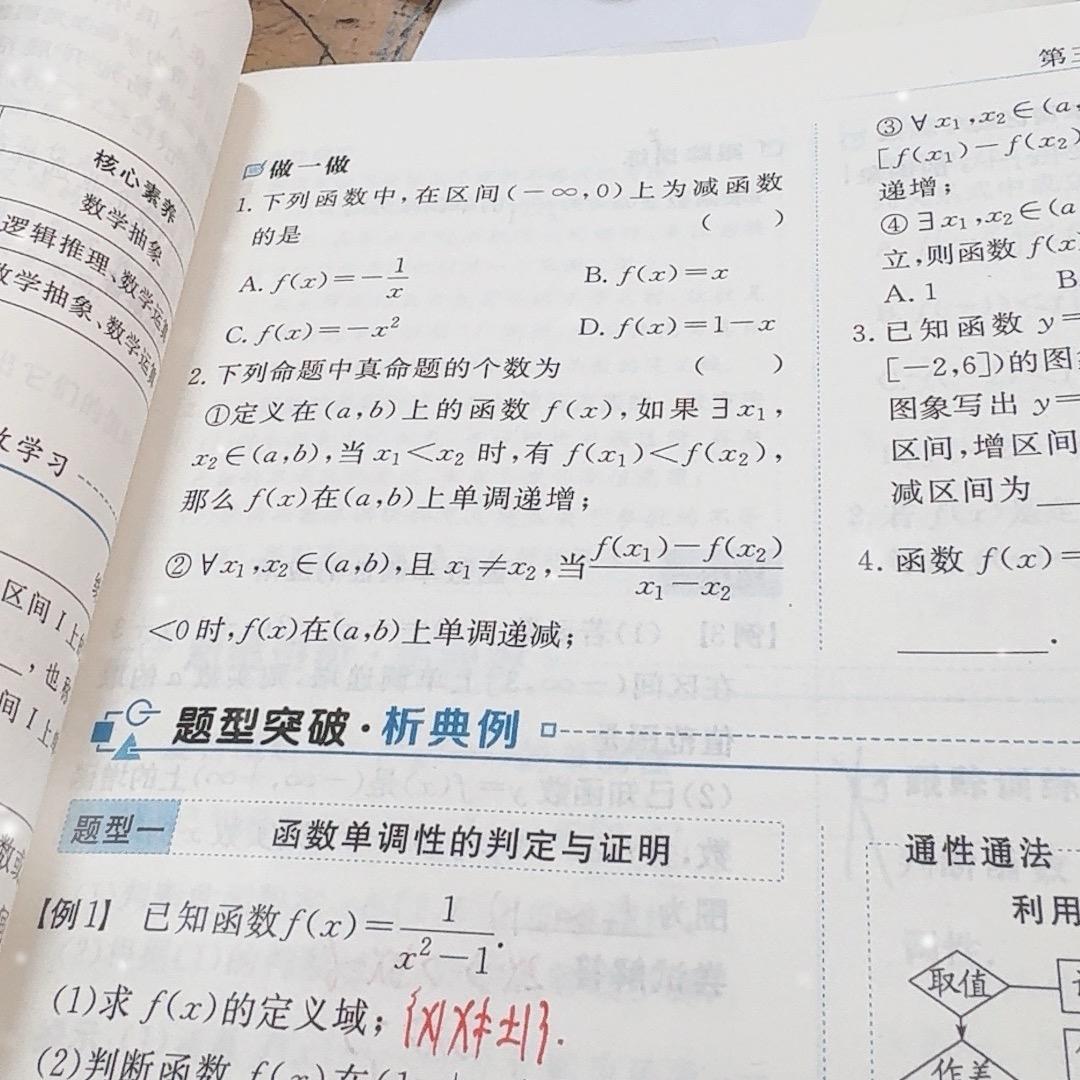 核心素养
数学抽象
逻辑推理、数学运算
数学抽象、数学运算
学习
区间 I 上
,也称
间 I 上
第三
做一做
1. 下列函数中,在区间(-∞,0)上为减函数
的是 ( )
A. f(x)=-1/x B. f(x)=x
C. f(x)=-x² D. f(x)=1-x
2. 下列命题中真命题的个数为 ( )
①定义在(a,b)上的函数 f(x),如果∃x₁,
x₂∈(a,b),当 x₁<x₂ 时,有 f(x₁)<f(x₂),
那么 f(x)在(a,b)上单调递增;
②∀x₁,x₂∈(a,b),且 x₁≠x₂,当(f(x₁)-f(x₂))/(x₁-x₂)
<0时,f(x)在(a,b)上单调递减;
③∀x₁,x₂∈(a,
[f(x₁)-f(x₂)
递增;
④∃x₁,x₂∈(a
立,则函数 f(x
A. 1 B
3. 已知函数 y=
[-2,6])的图
图象写出 y=
区间,增区间
减区间为
4. 函数 f(x)=
.
题型突破·析典例
题型一 函数单调性的判定与证明
【例1】 已知函数f(x)=1/(x²-1).
(1)求 f(x)的定义域; {x|x≠±1}.
(2)判断函数 f(x)在(1,+
通性通法
利用
取值
作差